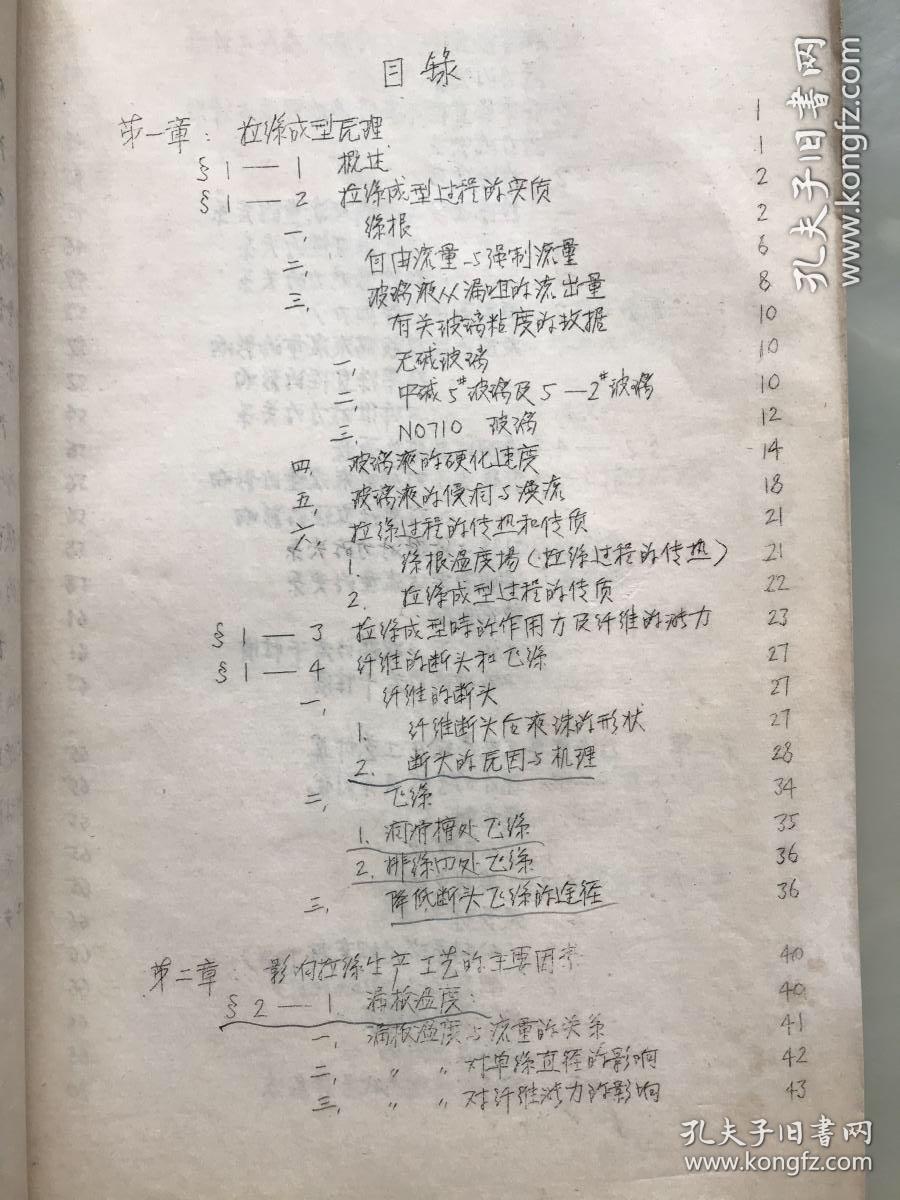 目錄
第一章：拉絲成型原理 1
§1—1 概述 1
§1—2 拉絲成型过程的实质 2
一、絲根 2
二、自由流量与强制流量 6
三、玻璃液从漏咀的流出量 8
有关玻璃粘度的数据 10
一、无碱玻璃 10
二、中碱5#玻璃及5—2#玻璃 10
三、NO710 玻璃 12
四、玻璃液的硬化速度 14
五、玻璃液的浸润与漫流 18
六、拉絲过程的传热和传质 21
1. 絲根温度場（拉絲过程的传热） 21
2. 拉絲成型过程的传质 22
§1—3 拉絲成型時的作用力及纤维的张力 23
§1—4 纤维的断头和飞絲 27
一、纤维的断头 27
1. 纤维断头后液珠的形状 27
2. 断头的原因与机理 28
二、飞絲 34
1. 润滑槽处飞絲 35
2. 排絲处飞絲 36
三、降低断头飞絲的途径 36
第二章：影响拉絲生产工艺的主要因素 40
§2—1 漏板温度： 40
一、漏板温度与流量的关系 41
二、〃 〃 对单絲直径的影响 42
三、〃 〃 对纤维张力的影响 43
孔夫子旧书网
www.kongfz.com
孔夫子旧书网
www.kongfz.com